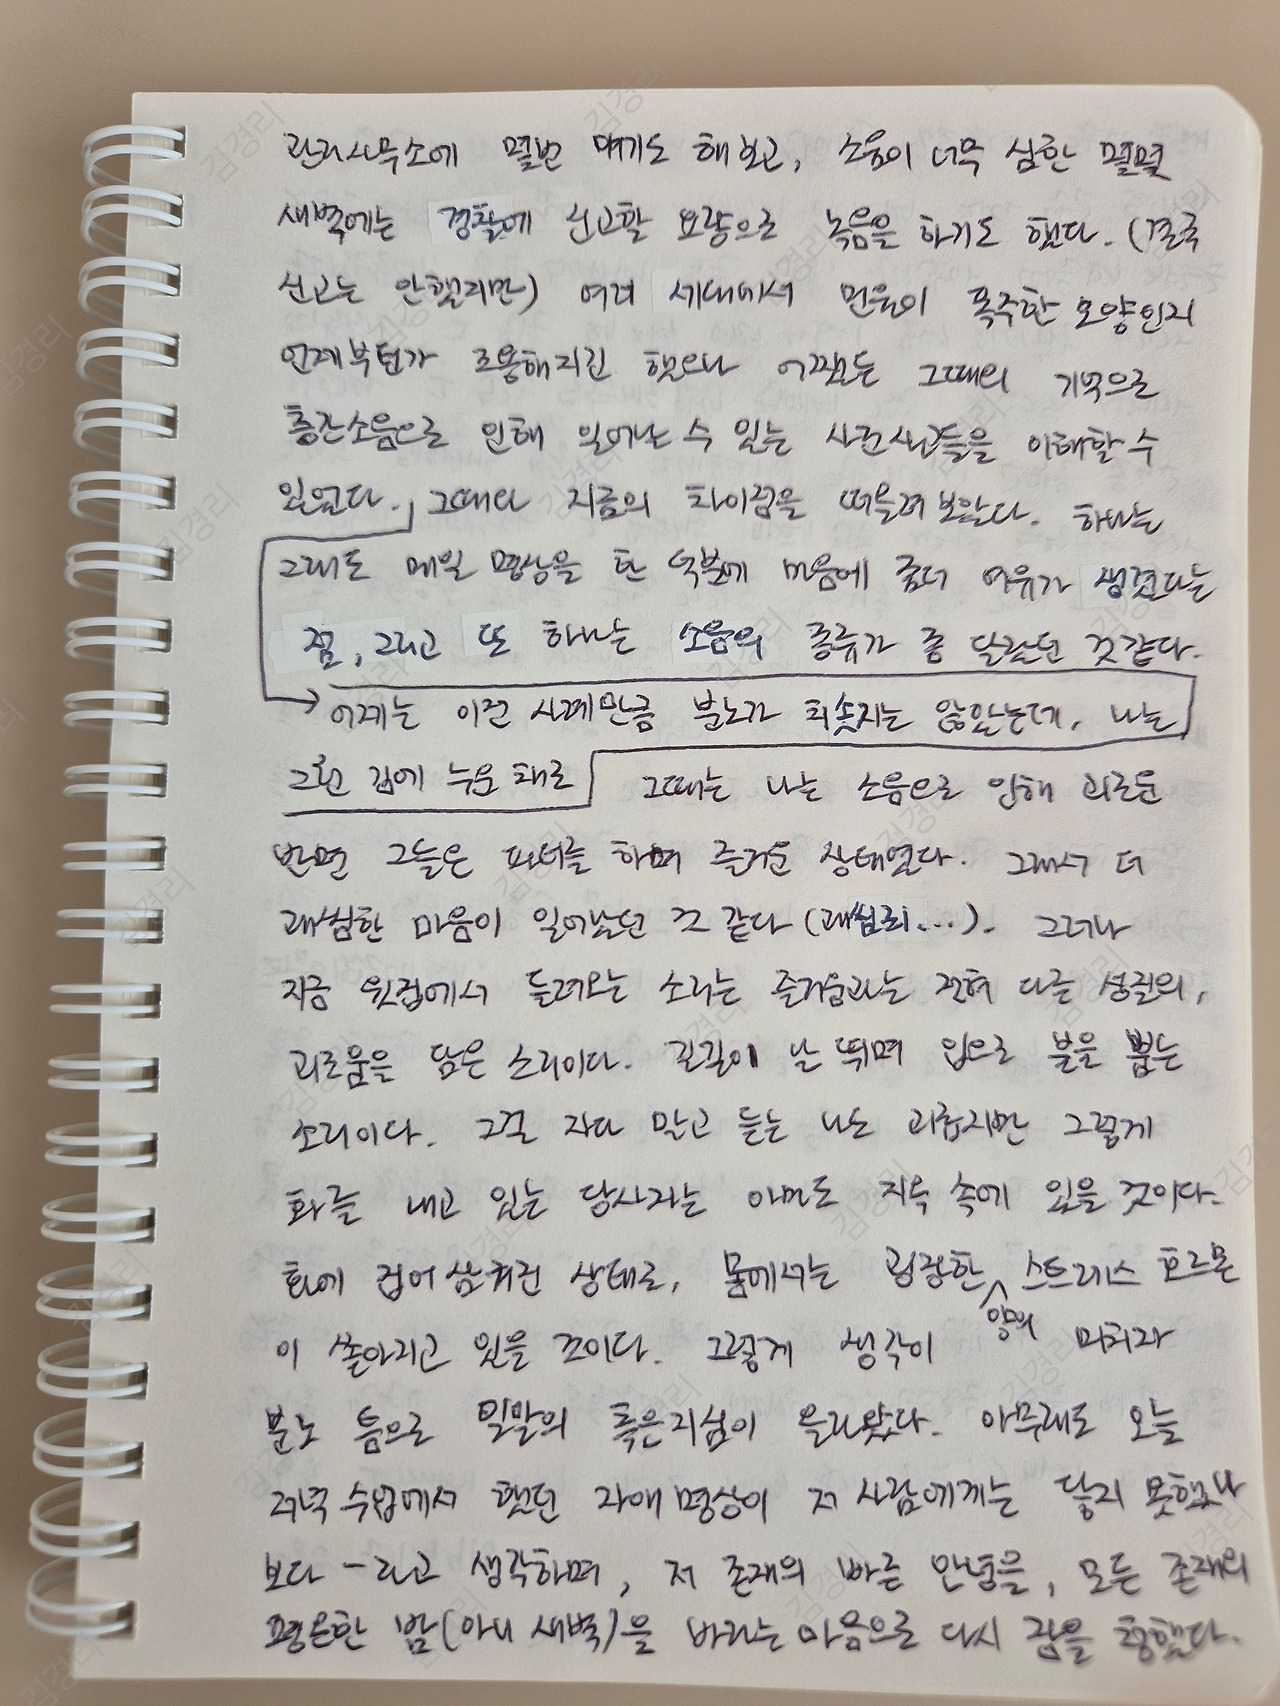 관리사무소에 몇번 얘기도 해보고, 소음이 너무 심한 몇몇
새벽에는 경찰에 신고할 요량으로 녹음을 하기도 했다. (결국
신고는 안했지만) 여러 세대에서 민원이 폭주한 모양인지
언제부턴가 조용해지긴 했으나 어쨌든 그때의 기억으로
층간소음으로 인해 일어나는 수 있는 사건사고들을 이해할 수
있었다. 그때와 지금의 차이점을 떠올려 보았다. 하나는
그래도 매일 명상을 한 덕분에 마음에 좀더 여유가 생겼다는
점, 그리고 또 하나는 소음의 종류가 좀 달랐던 것 같다.
어제는 이전 사례만큼 분노가 치솟지는 않았는데, 나는
그런 집에 누운 채로 그때는 나는 소음으로 인해 괴로운
반면 그들은 파티를 하며 즐거운 상태였다. 그래서 더
괘씸한 마음이 일어났던 것 같다 (괘씸죄...). 그러나
지금 윗집에서 들려오는 소리는 즐거움과는 전혀 다른 성질의,
괴로움을 담은 소리이다. 길길이 날뛰며 입으로 불을 뿜는
소리이다. 그걸 자다 말고 듣는 나도 괴롭지만 그렇게
화를 내고 있는 당사자는 아마도 지옥 속에 있을 것이다.
화에 집어삼켜진 상태로, 몸에서는 굉장한 스트레스 호르몬
양의
이 쏟아지고 있을 것이다. 그렇게 생각이 미치자
분노 틈으로 일말의 측은지심이 올라왔다. 아무래도 오늘
저녁 수업에서 했던 자애 명상이 저 사람에게는 닿지 못했나
보다 - 라고 생각하며, 저 존재의 빠른 안녕을, 모든 존재의
평온한 밤(아니 새벽)을 바라는 마음으로 다시 잠을 청했다.
김경리